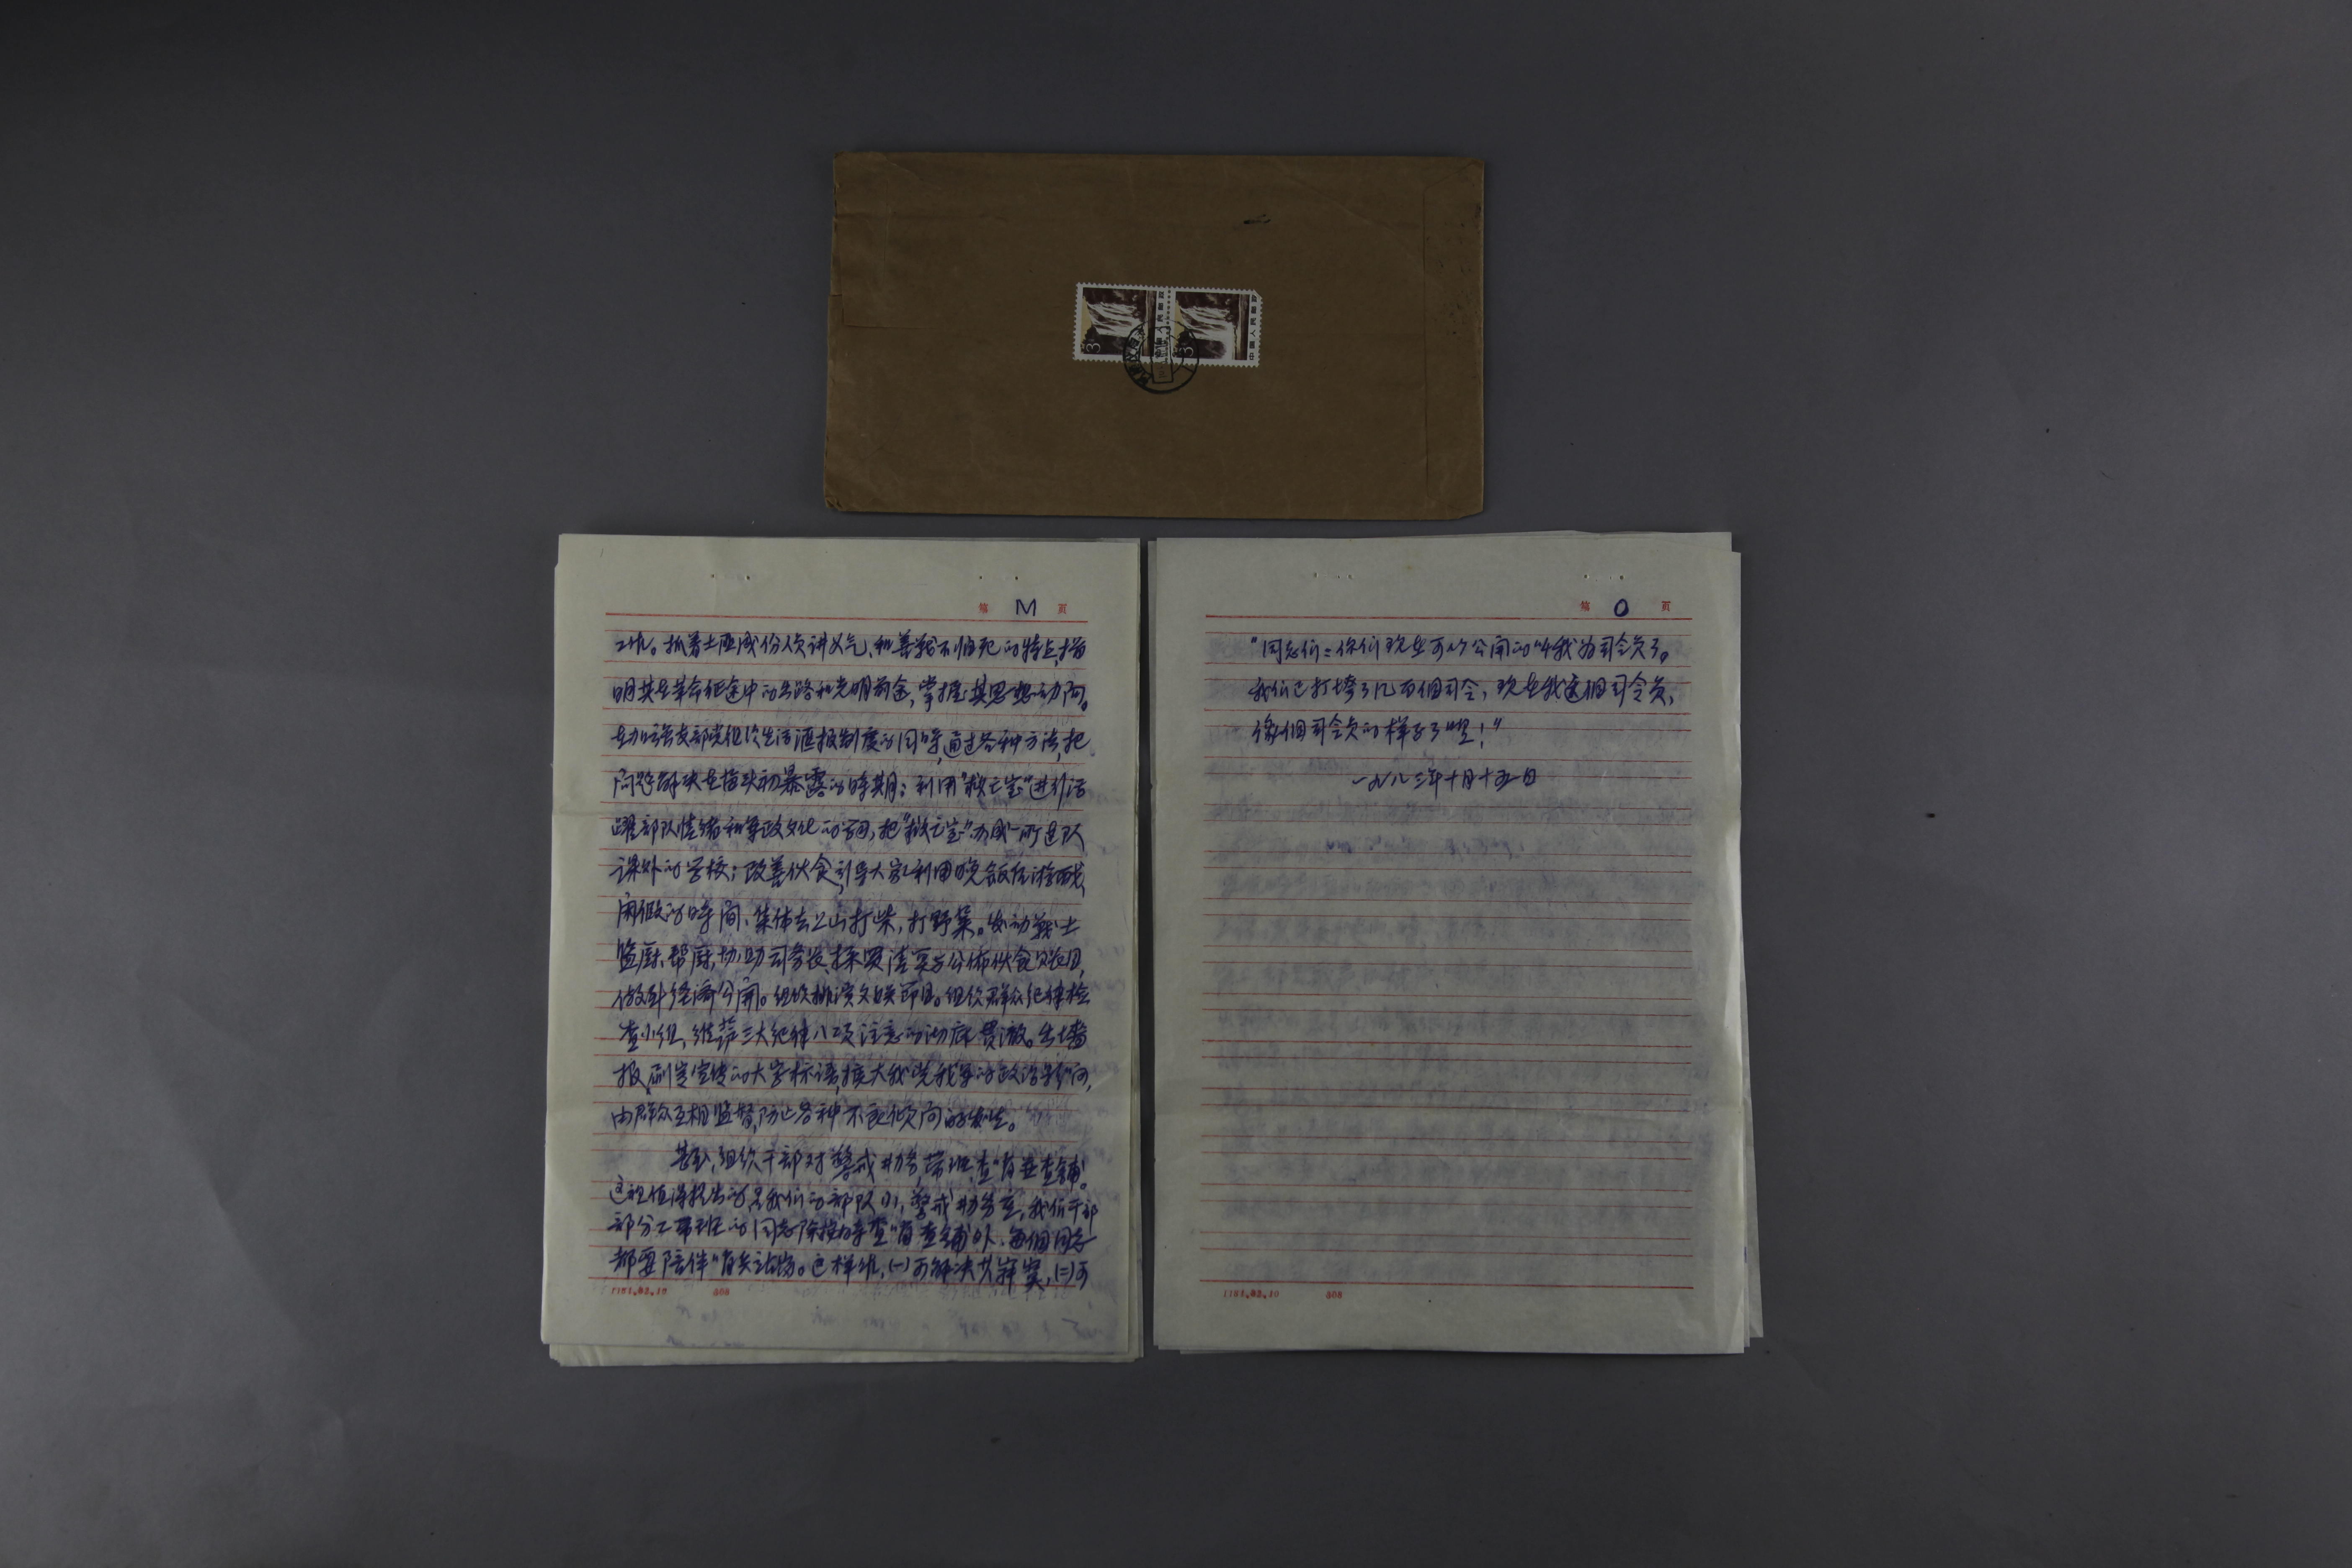 中国人民邮政
中国人民邮政
3
3
第 M 页
工作。抓着土匪成份人员讲义气、和善战不怕死的特点,指
明其在革命征途中的出路和光明前途,掌握其思想动向。
在加强支部党组织生活汇报制度的同时,通过各种方法,把
问题解决在萌芽初暴露的时期;利用"救亡室"进行活
跃部队情绪和军政文化的学习,把"救亡室"办成一所连队
课外的学校;改善伙食,引导大家利用晚饭后游戏、
闲暇的時间、集体去上山打柴,打野菜。发动战士
监厨、帮厨,协助司务长採买清算与公佈伙食账目,
做到经济公开。组织排演文娱节目。组织群众纪律检
查小组,维护三大纪律八项注意的彻底贯澈。出墙
报,刷写宣传的大字标语,擴大我党我军的政治影响,
由群众互相监督,防止各种不良倾向的发生。
甚至,组织干部对警戒勤务,带班、查哨查铺。
这里值得提出的是我们的部队小,警戒勤务重,我们干部
部分工带班的同志除按时查哨查铺外、每個同志
都要陪伴哨兵站岗。这样做,(一)可解决其寂寞,(二)可
1181.02.10 608
第 O 页
"同志们:你们现在可以公开的叫我为司令员了。
我们已打垮了几百個司令,现在我这個司令员,
像個司令员的样子了吧!"
一九八三年十月十五日
1181.02.10 608